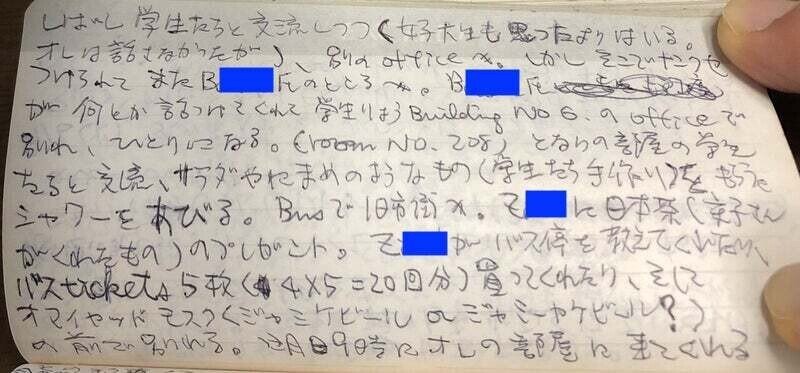 しばし学生たちと交流しつつ(女子大生も思ったよりはいる。
オレは話さなかったが)、別のofficeへ。しかしそこでナンクセ
つけられてまたB 氏のところへ。B 氏
が何とか話つけてくれて学生りょうBuilding NO 6.のofficeで
別れ、ひとりになる。(room NO. 208)となりの部屋の学生
たちと交流、サラダやにまめのようなもの(学生たち手作り)をもらう
シャワーをあびる。Busで旧市街へ。Z に日本茶(幸子さん
がくれたもの)のプレゼント。Z がバス停を教えてくれたり、
バスtickets 5枚(4×5=20回分)買ってくれたり、そして
オマイヤッドモスク(ジャミケビール orジャミーケビール?)
の前で別れる。翌日9時にオレの部屋に来てくれる